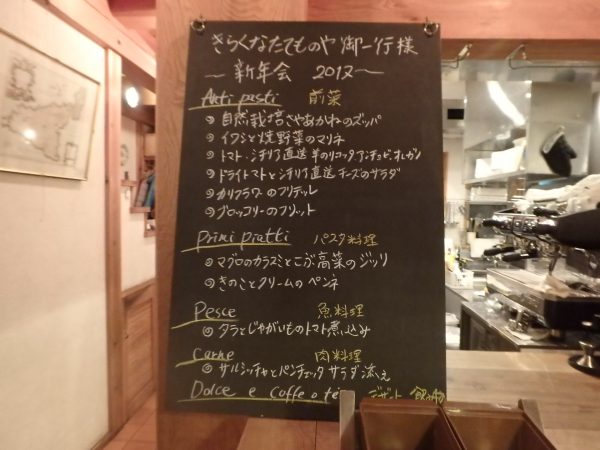 きらくなたてものや御一行様
〜新年会 2017〜
Anti pasti 前菜
◎自然栽培さやあかねのズッパ
◎イワシと焼野菜のマリネ
◎トマト・シチリア直送羊のリコッタ,アンチョビ・オレガン
◎ドライトマトとシチリア直送チーズのサラダ
◎カリフラワーのフリテッレ
◎ブロッコリーのフリット
Primi piatti パスタ料理
◎マグロのカラスミとこぶ高菜のジッリ
◎きのことクリームのペンネ
Pesce 魚料理
◎タラとじゃがいものトマト煮込み
Carne 肉料理
◎サルシッチャとパンチェッタ サラダ添え
Dolce e caffe o te デザート 飲み物